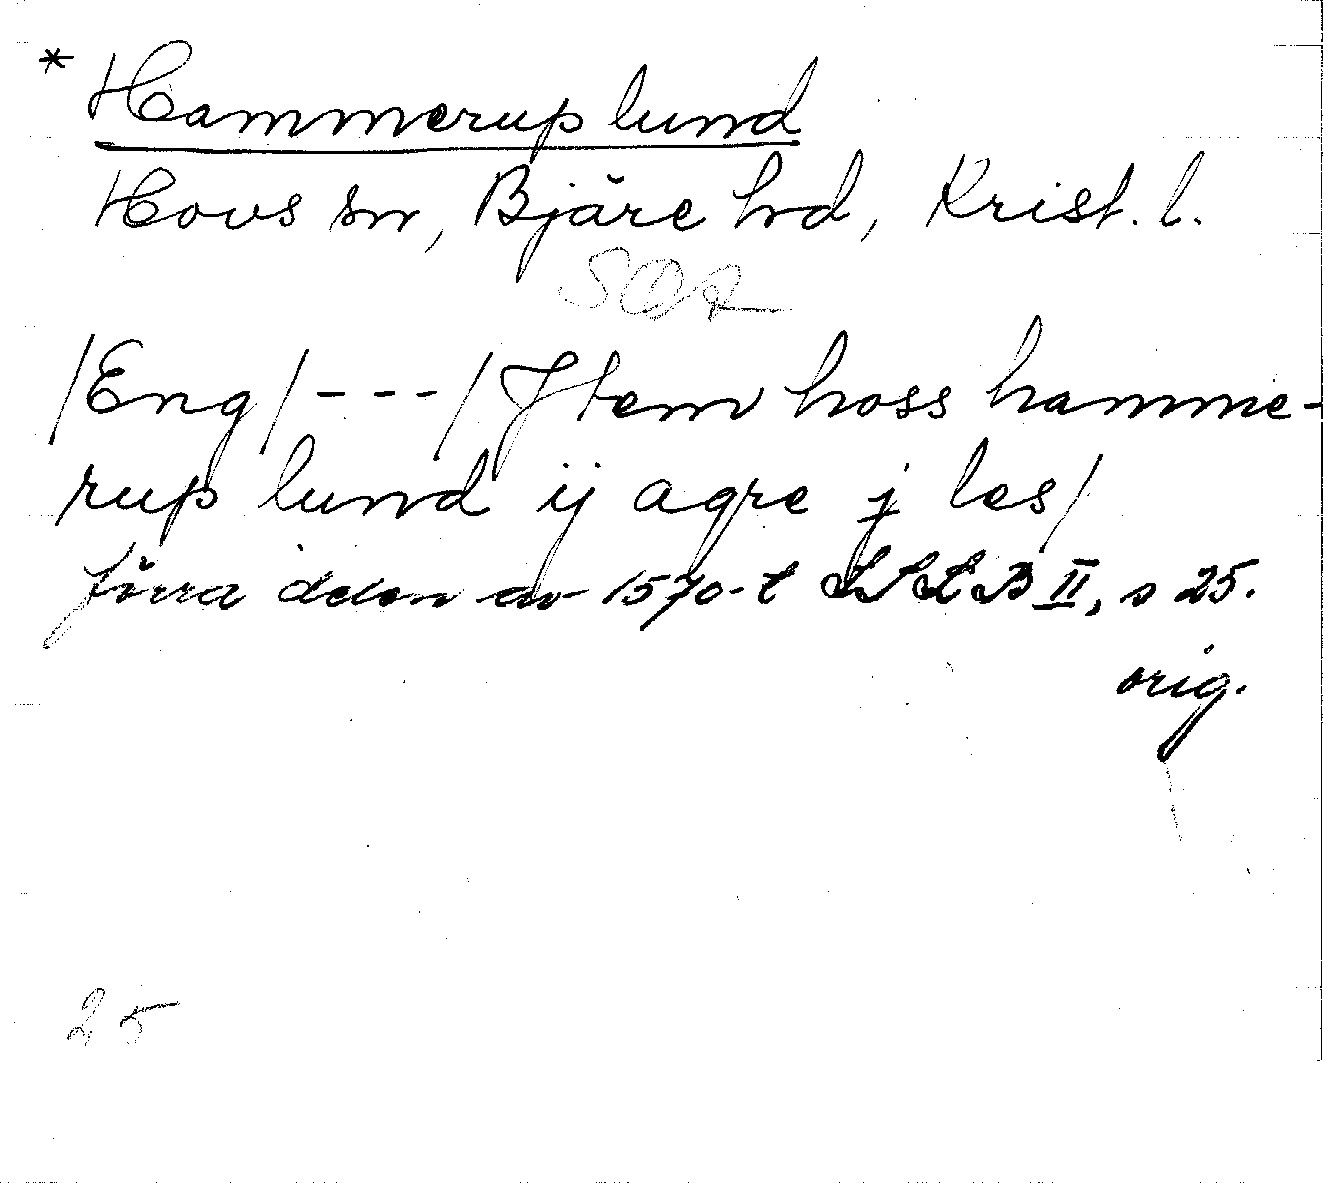 * Hammerup lund
Hovs sn, Bjäre hd, Krist. l.
SOA
/Eng/ --- / Jtem hoss hamme-
rup lund ij agre j les/
förra delen av 1570-t LLLB II, s 25.
orig.
25